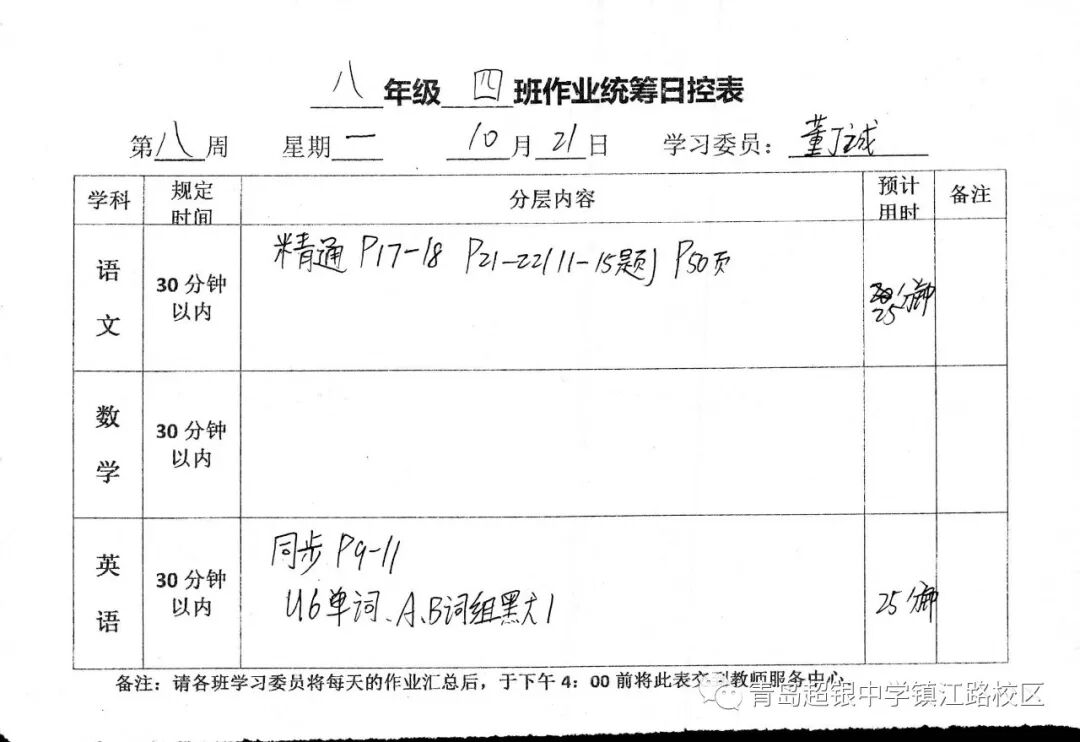 八年级 四 班作业统筹日控表
第八周 星期一 10月21日 学习委员：董丁诚
学科 规定时间 分层内容 预计用时 备注
语文 30分钟以内 精通 P17-18 P21-22(11-15题) P50页 25分钟
数学 30分钟以内
英语 30分钟以内 同步 P9-11
U6单词、A、B词组默大1 25分钟
备注：请各班学习委员将每天的作业汇总后，于下午4：00前将此表交到教师服务中心
青岛超银中学镇江路校区